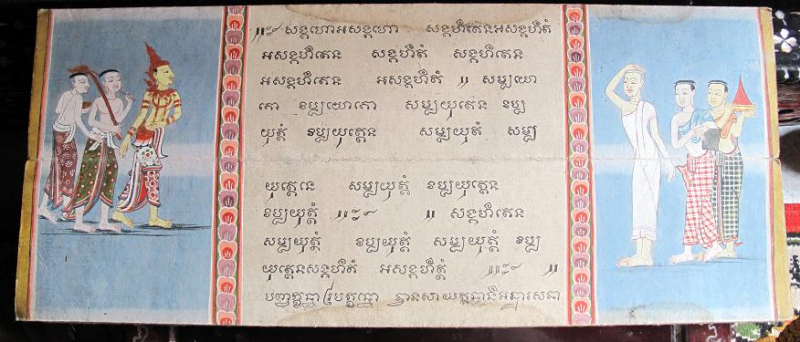 សង្គហោអសង្គហោ សង្គហិតេនអសង្គហិតំ
អសង្គហិតេន សង្គហិតំ សង្គហិតេន
អសង្គហិតេន អសង្គហិតំ ៕ សម្បយោ
គោ វិប្បយោគោ សម្បយុត្តេន វិប្ប
យុត្តំ វិប្បយុត្តេន សម្បយុត្តំ សម្ប
យុត្តេន សម្បយុត្តំ វិប្បយុត្តេន
វិប្បយុត្តំ ៕ សង្គហិតេន
សម្បយុត្តំ វិប្បយុត្តំ សម្បយុត្តំ វិប្ប
យុត្តេនសង្គហិតំ អសង្គហិតំ ៕